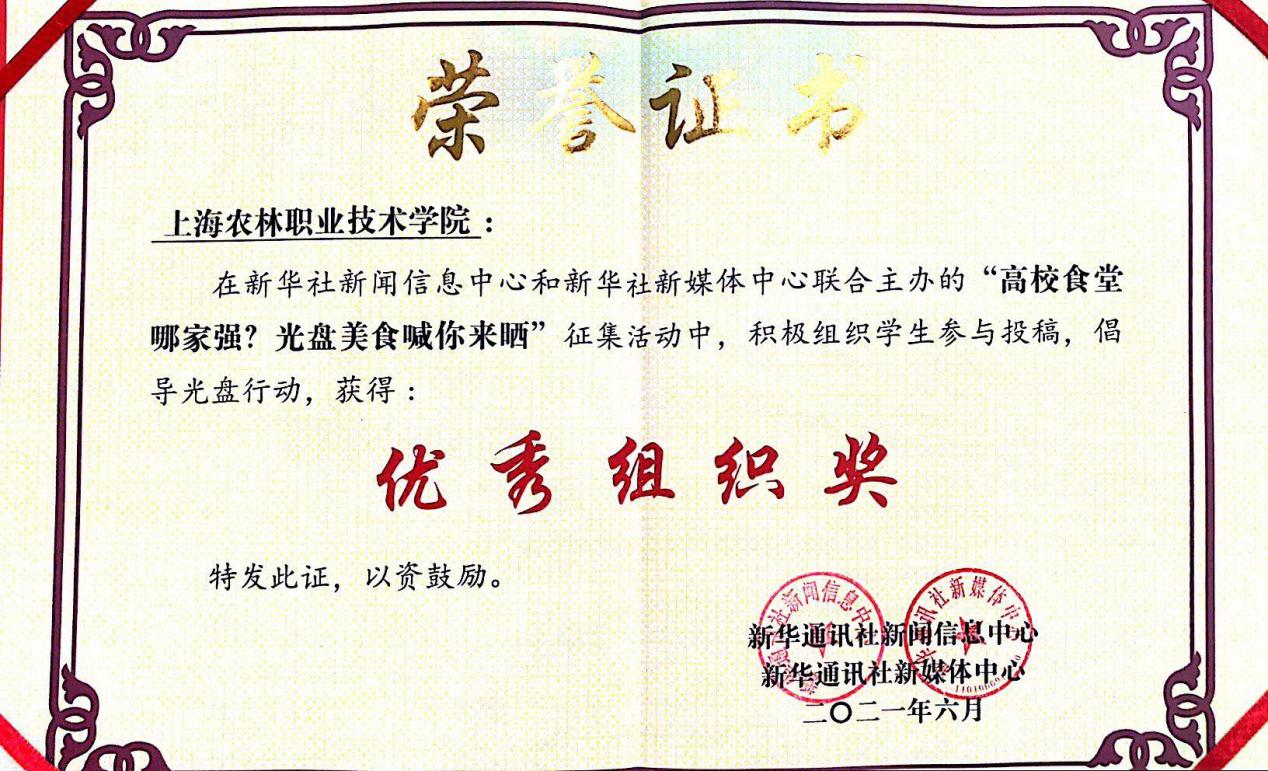 荣誉证书
上海农林职业技术学院：
在新华社新闻信息中心和新华社新媒体中心联合主办的“高校食堂
哪家强？光盘美食喊你来晒”征集活动中，积极组织学生参与投稿，倡
导光盘行动，获得：
优秀组织奖
特发此证，以资鼓励。
新华通讯社新闻信息中心
新华通讯社新媒体中心
二〇二一年六月